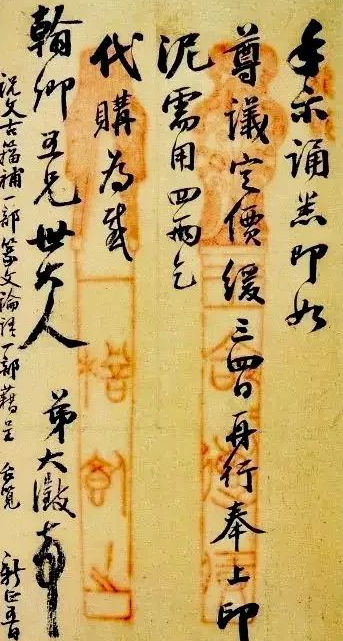 手示誦悉即如
尊議定價緩三四日再行奉上印
泥需用四兩乞
代購為感
翰卿五兄世大人 弟大澂頓首
説文古籀補一部篆文論語一部藉呈 台覽 新正五日